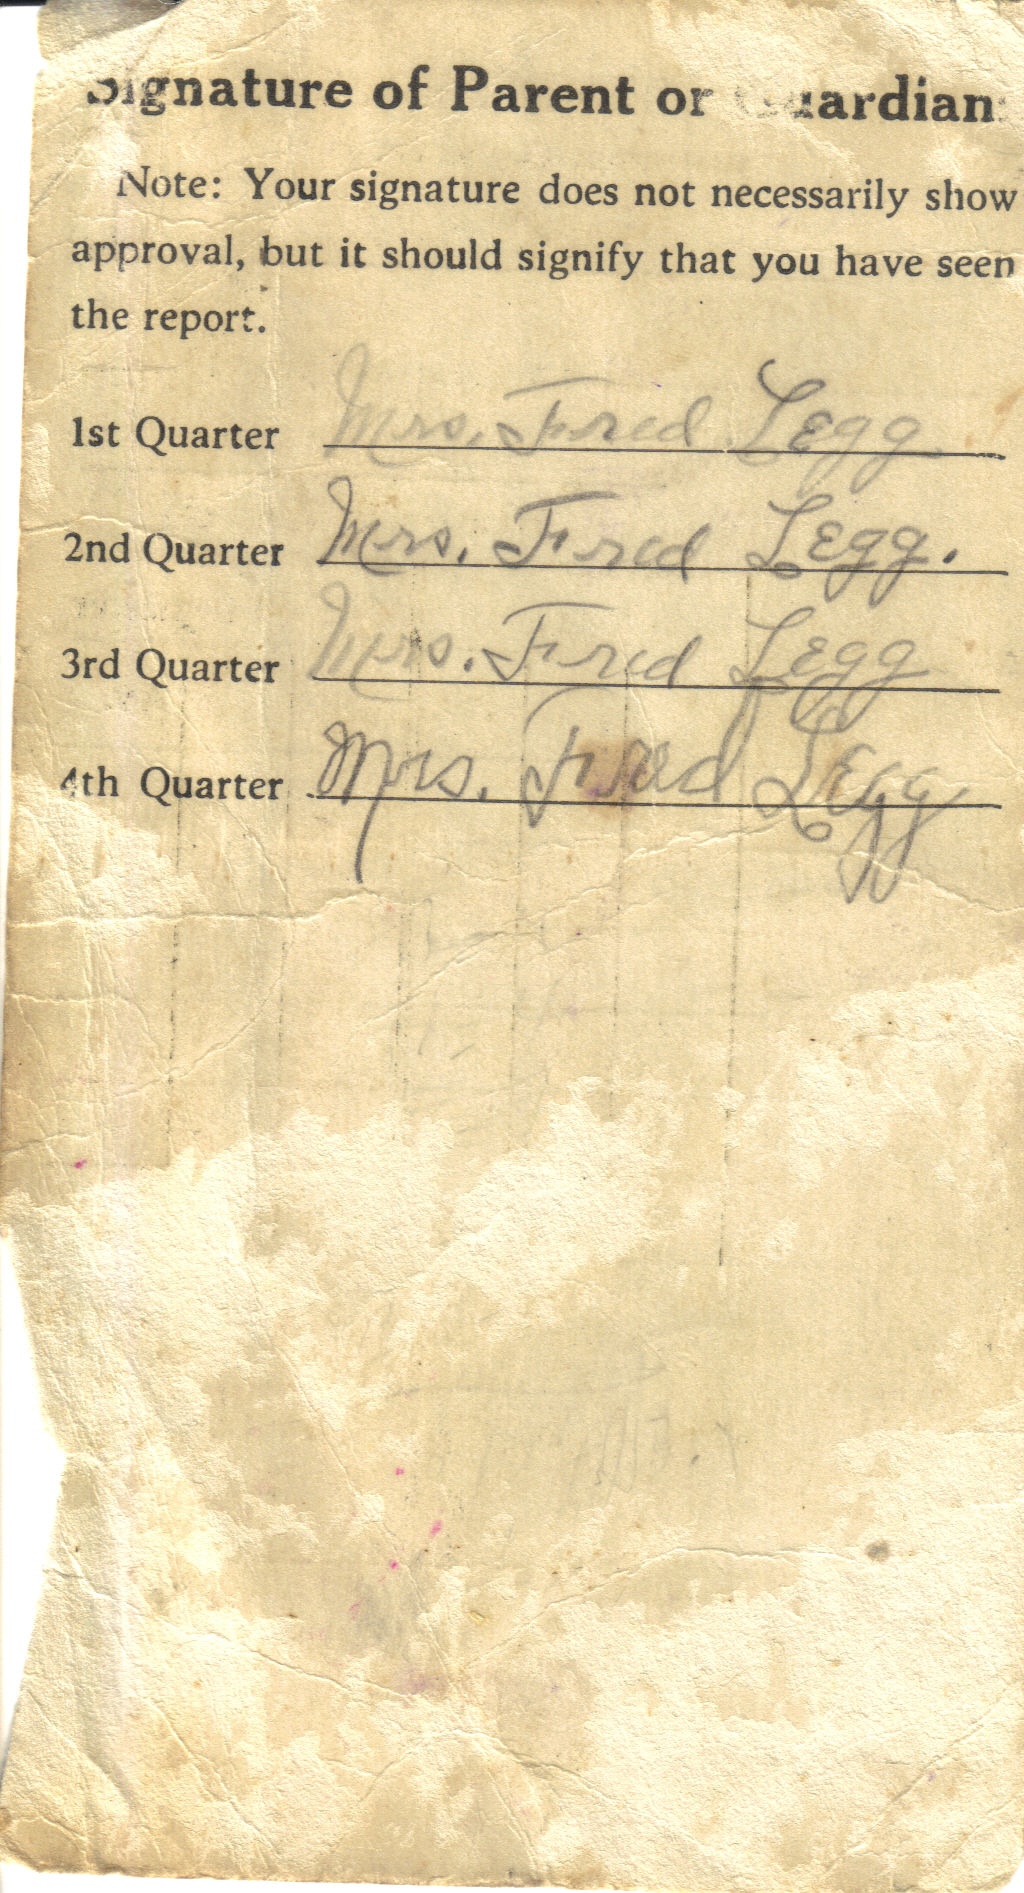 Signature of Parent or Guardian
Note: Your signature does not necessarily show
approval, but it should signify that you have seen
the report.
1st Quarter Mrs. Fred Legg
2nd Quarter Mrs. Fred Legg.
3rd Quarter Mrs. Fred Legg
4th Quarter Mrs. Fred Legg